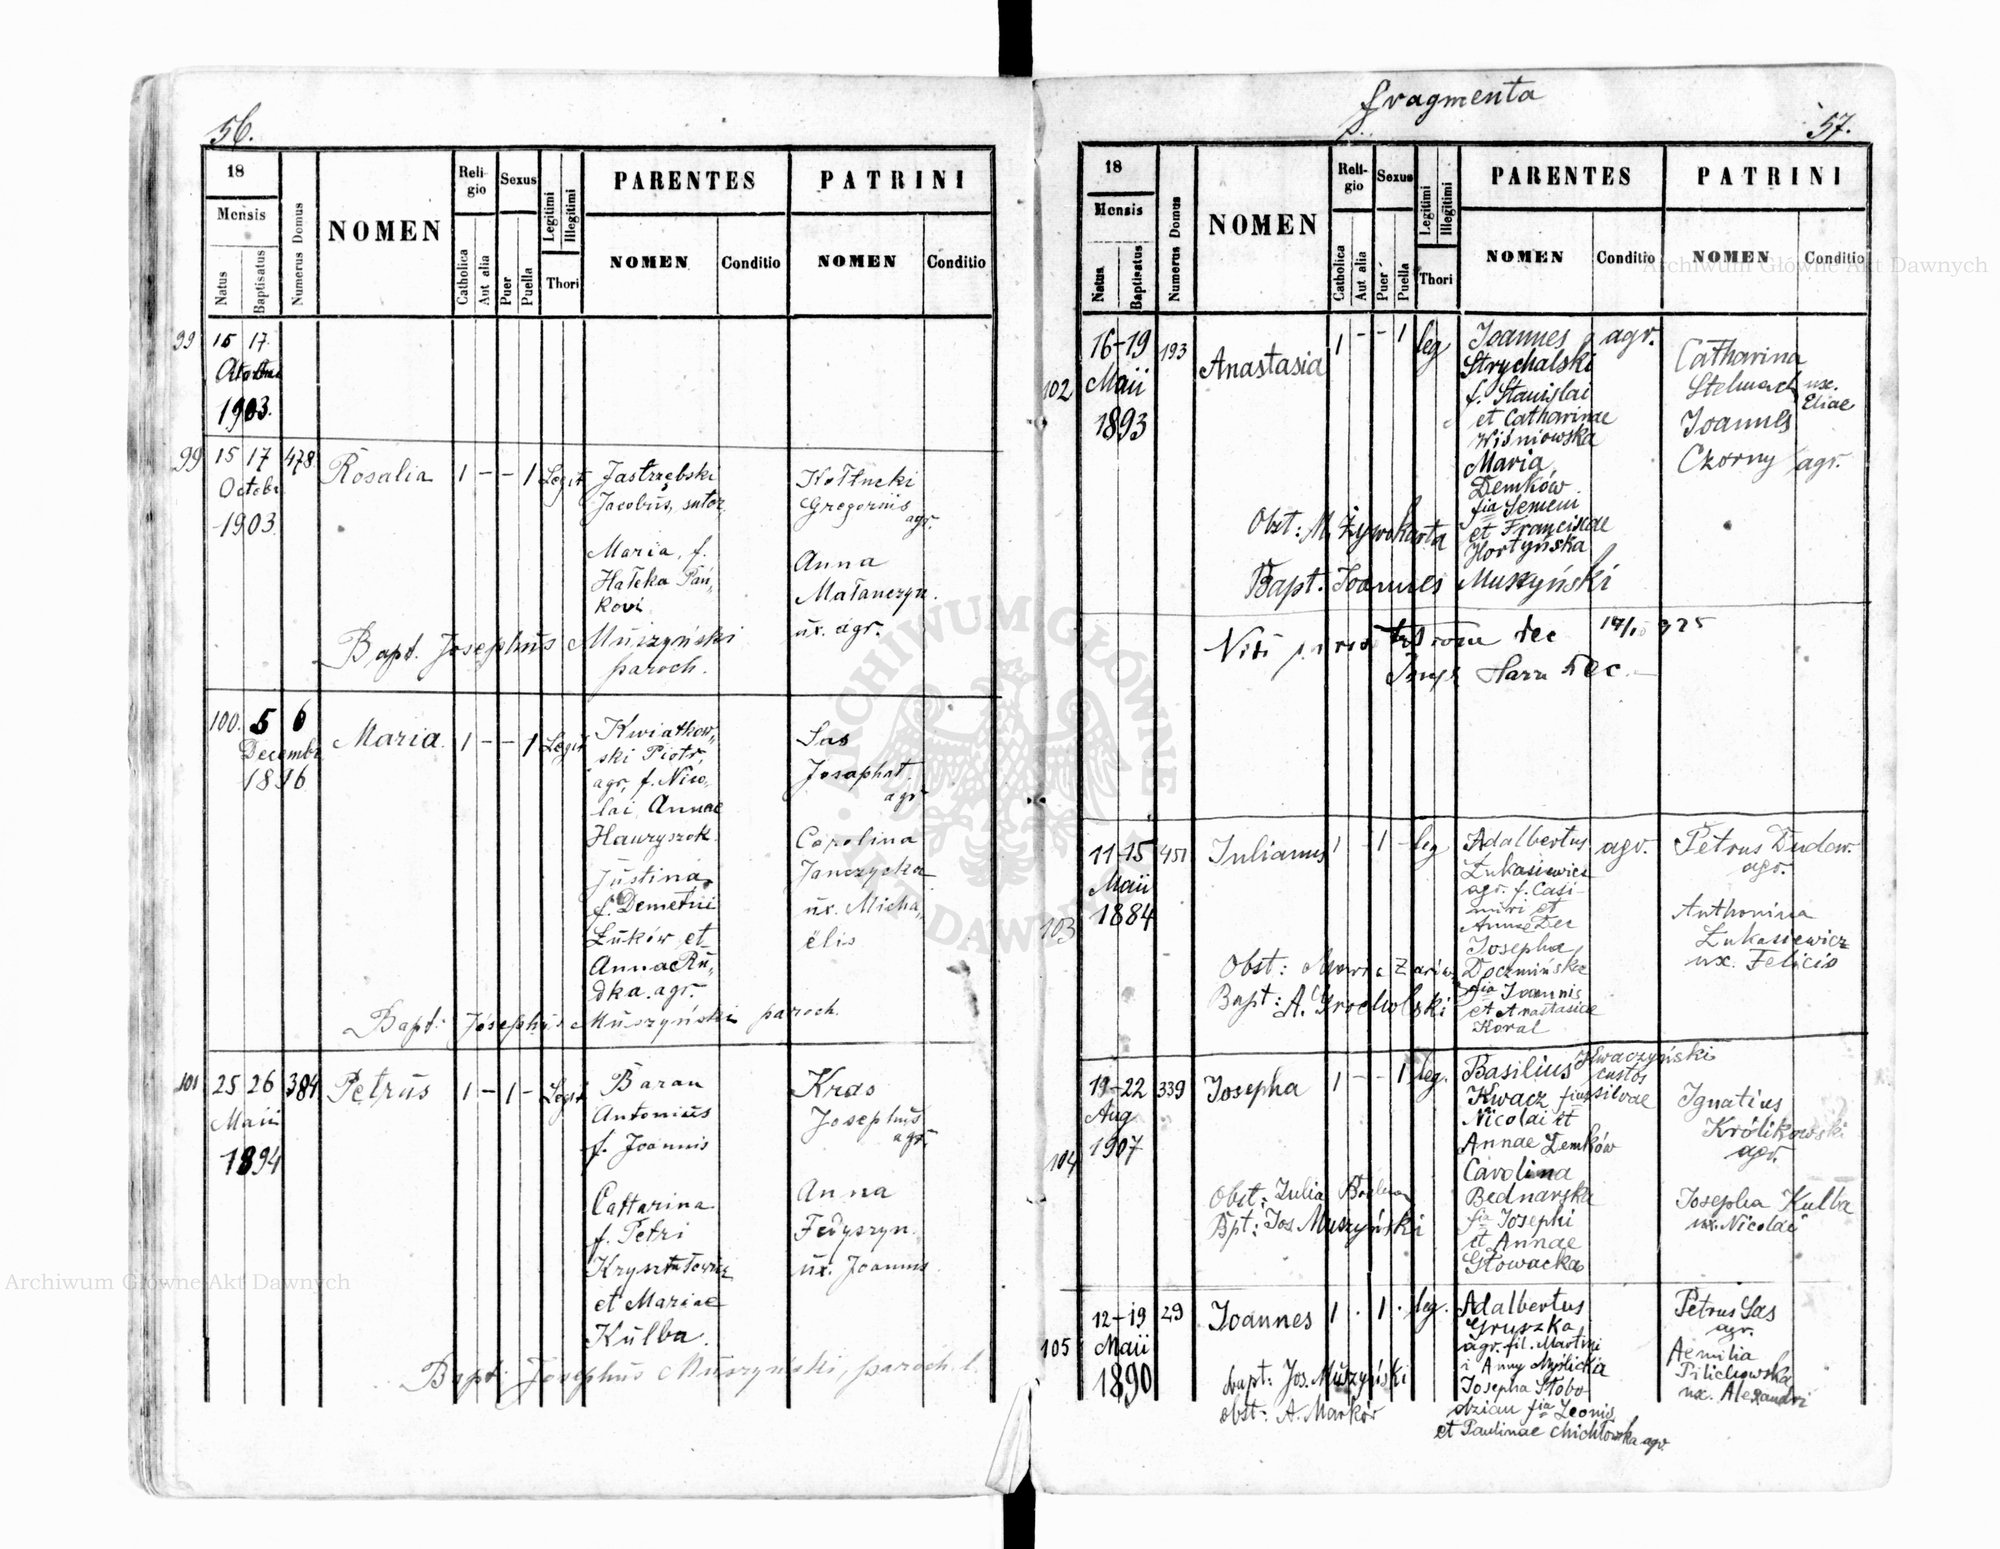 56.
18
Mensis
Natus
Baptisatus
Numerus Domus
NOMEN
Religio
Catholica
Aut alia
Sexus
Puer
Puella
Legitimi
Illegitimi
Thori
PARENTES
NOMEN
Conditio
PATRINI
NOMEN
Conditio
99
15 17
1903
99
15 17 478
Octobr
1903
Rosalia 1 - - 1 Legit
Jastrzębski
Jacobus, sutor
Maria, f.
Hałeka Pań„
kovi
Gregorius
agr.
Anna
Matanczyn.
ux. agr.
Bapt. Josephus Muszyński
paroch.
100. 5 6
Decembr
1896
Maria 1 - - 1 Legit
Kwiatkow„
ski Piotr,
agr, f. Nico„
lai, Annae
Hawryszok
Justina
f. Demetrii
Łuków et
Anna Ru„
dka. agr.
Sas
Josaphat,
agr
Carolina
Janczycka
ux. Micha„
ëlis
Bapt: Josephus Muszyński paroch.
101
25 26 384
Maii
1894
Petrus 1 - 1 - Legit
Baran
Antonius
f. Joannis
Cattarina
f. Petri
et Mariae
Kulba.
Kras
Josephus
agr.
Anna
Fedyszyn.
ux. Joannis
Bapt: Josephus Muszyński, paroch. l.
fragmenta
57.
18
Mensis
Natus
Baptisatus
Numerus Domus
NOMEN
Religio
Catholica
Aut alia
Sexus
Puer
Puella
Legitimi
Illegitimi
Thori
PARENTES
NOMEN
Conditio
PATRINI
NOMEN
Conditio
102
16-19 193
Maii
1893
Anastasia 1 - - 1 leg
Joannes agr.
Strychalski
f. Stanislai
et Catharinae
Wiśniowska
Maria
Demków
fia Semeni
et Franciscae
Hortyńska
Catharina
Stelmach ux.
Eliae
Joannes
Czorny agr.
Obst: M. Żywokarta
Bapt: Joannes Muszyński
103
11-15 451
Maii
1884
Julianus 1 - 1 - leg
Adalbertus agr.
Łukasiewicz
agr. f. Casi-
miri et
Annae Dec
Josepha
Doczmińska
fia Joannis
et Anastasiae
Koral
Petrus Dudow.
agr.
Anthonina
Łukasiewicz
ux. Felicis
Bapt: A. Grocholski
104
19-22 339
Aug
1907
Josepha 1 - - 1 leg.
Basilius Kwaczyński
custos
Kwacz fius silvae
Nicolai et
Annae Zemków
Carolina
Bednarska
fia Josephi
et Annae
Głowacka
Ignatius
Królikowski
agr.
Josepha Kulba
ux. Nicolai
Bpt: Jos Muszyński
105
12-19 29
Maii
1890
Joannes 1 . 1 . leg.
Adalbertus
Gruszka
agr. fil. Martini
i Anny Myślicka
Josepha Słobo
dzian fia Leonis
et Paulinae Chichłowska agr.
Petrus Sas
agr.
Aemilia
Pilichowska
ux. Alexandri
bapt: Jos. Muszyński
obst: A. Marków
ARCHIWUM GŁÓWNE AKT DAWNYCH
Archiwum Główne Akt Dawnych
Archiwum Główne Akt Dawnych